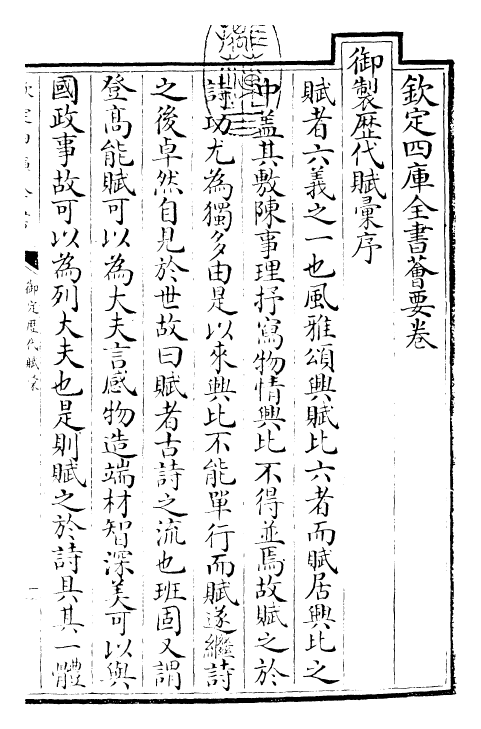 欽定四庫全書薈要卷
御製歴代賦彙序
賦者六義之一也風雅頌興賦比六者而賦居興比之
中盖其敷陳事理抒寫物情興比不得並焉故賦之於
詩功尤為獨多由是以來興比不能單行而賦遂繼詩
之後卓然自見於世故曰賦者古詩之流也班固又謂
登髙能賦可以為大夫言感物造端材智深美可以與
國政事故可以為列大夫也是則賦之於詩具其一體
御定歴代賦彙